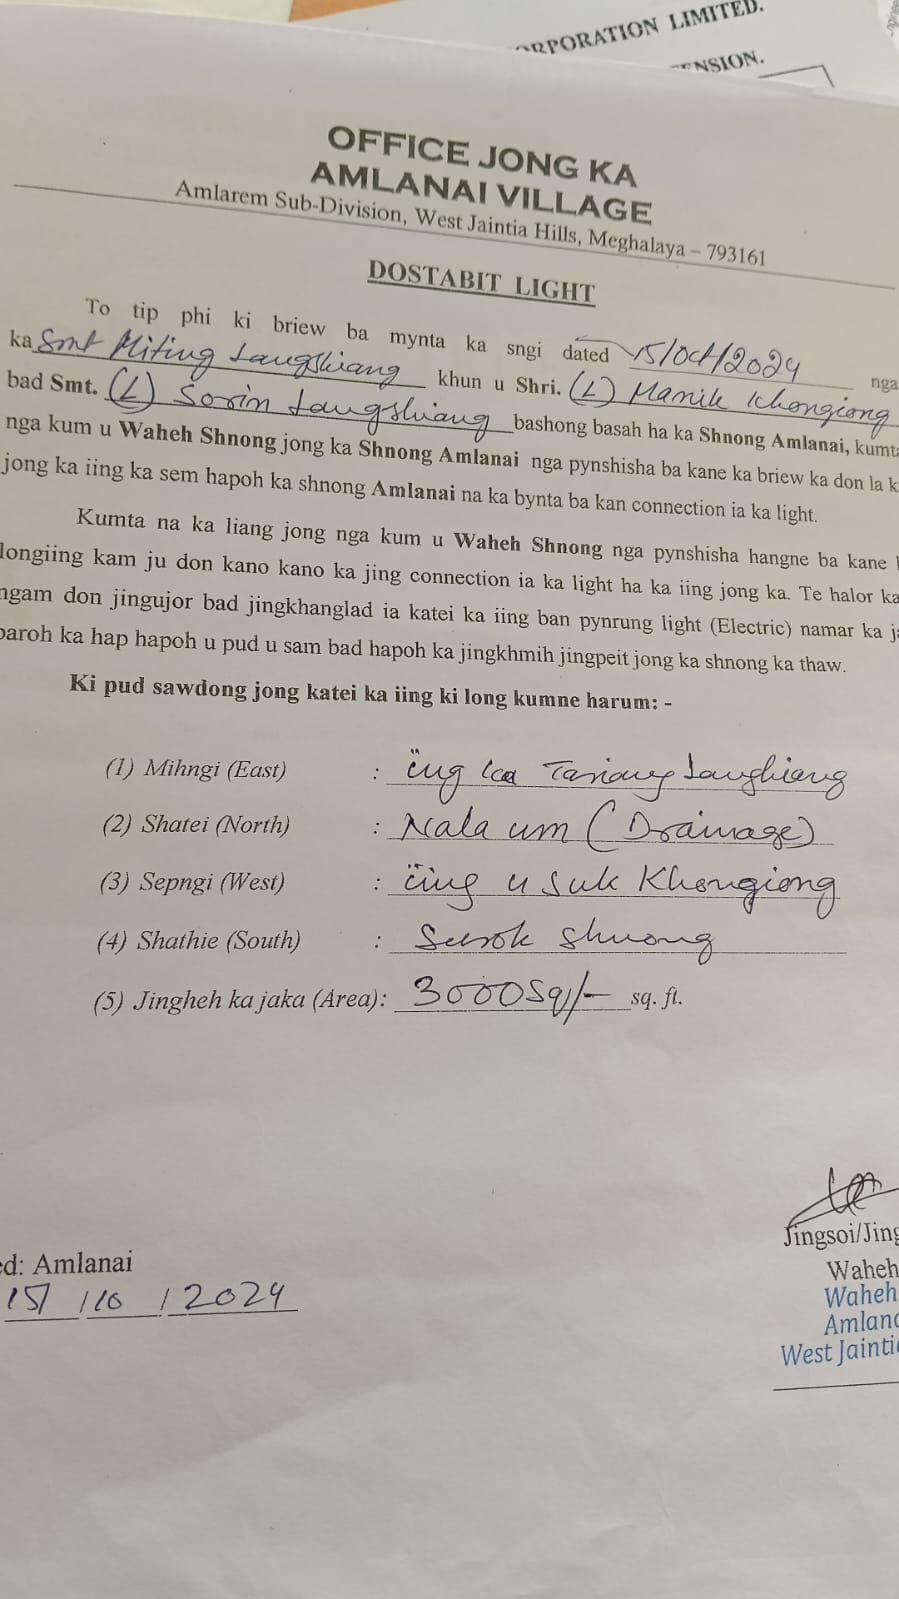 CORPORATION LIMITED.
TENSION.
OFFICE JONG KA
AMLANAI VILLAGE
Amlarem Sub-Division, West Jaintia Hills, Meghalaya – 793161
DOSTABIT LIGHT
To tip phi ki briew ba mynta ka sngi dated 15/Oct/2024 nga
ka Smt Miting Langshiang khun u Shri. (L) Manik Khongiong
bad Smt. (L) Sorin Langshiang bashong basah ha ka Shnong Amlanai, kumta
nga kum u Waheh Shnong jong ka Shnong Amlanai nga pynshisha ba kane ka briew ka don la k
jong ka iing ka sem hapoh ka shnong Amlanai na ka bynta ba kan connection ia ka light.
Kumta na ka liang jong nga kum u Waheh Shnong nga pynshisha hangne ba kane
longiing kam ju don kano kano ka jing connection ia ka light ha ka iing jong ka. Te halor ka
ngam don jingujor bad jingkhanglad ia katei ka iing ban pynrung light (Electric) namar ka ja
baroh ka hap hapoh u pud u sam bad hapoh ka jingkhmih jingpeit jong ka shnong ka thaw.
Ki pud sawdong jong katei ka iing ki long kumne harum: -
(1) Mihngi (East) : ïing ka Tariang Langhiang
(2) Shatei (North) : Nala um (Drainage)
(3) Sepngi (West) : ïing u Suk Khongiong
(4) Shathie (South) : Surok Shnong
(5) Jingheh ka jaka (Area): 3000Sq/- sq. ft.
Jingsoi/Jing
ed: Amlanai
Waheh
15 / 10 / 2024
Waheh
Amlana
West Jaintia